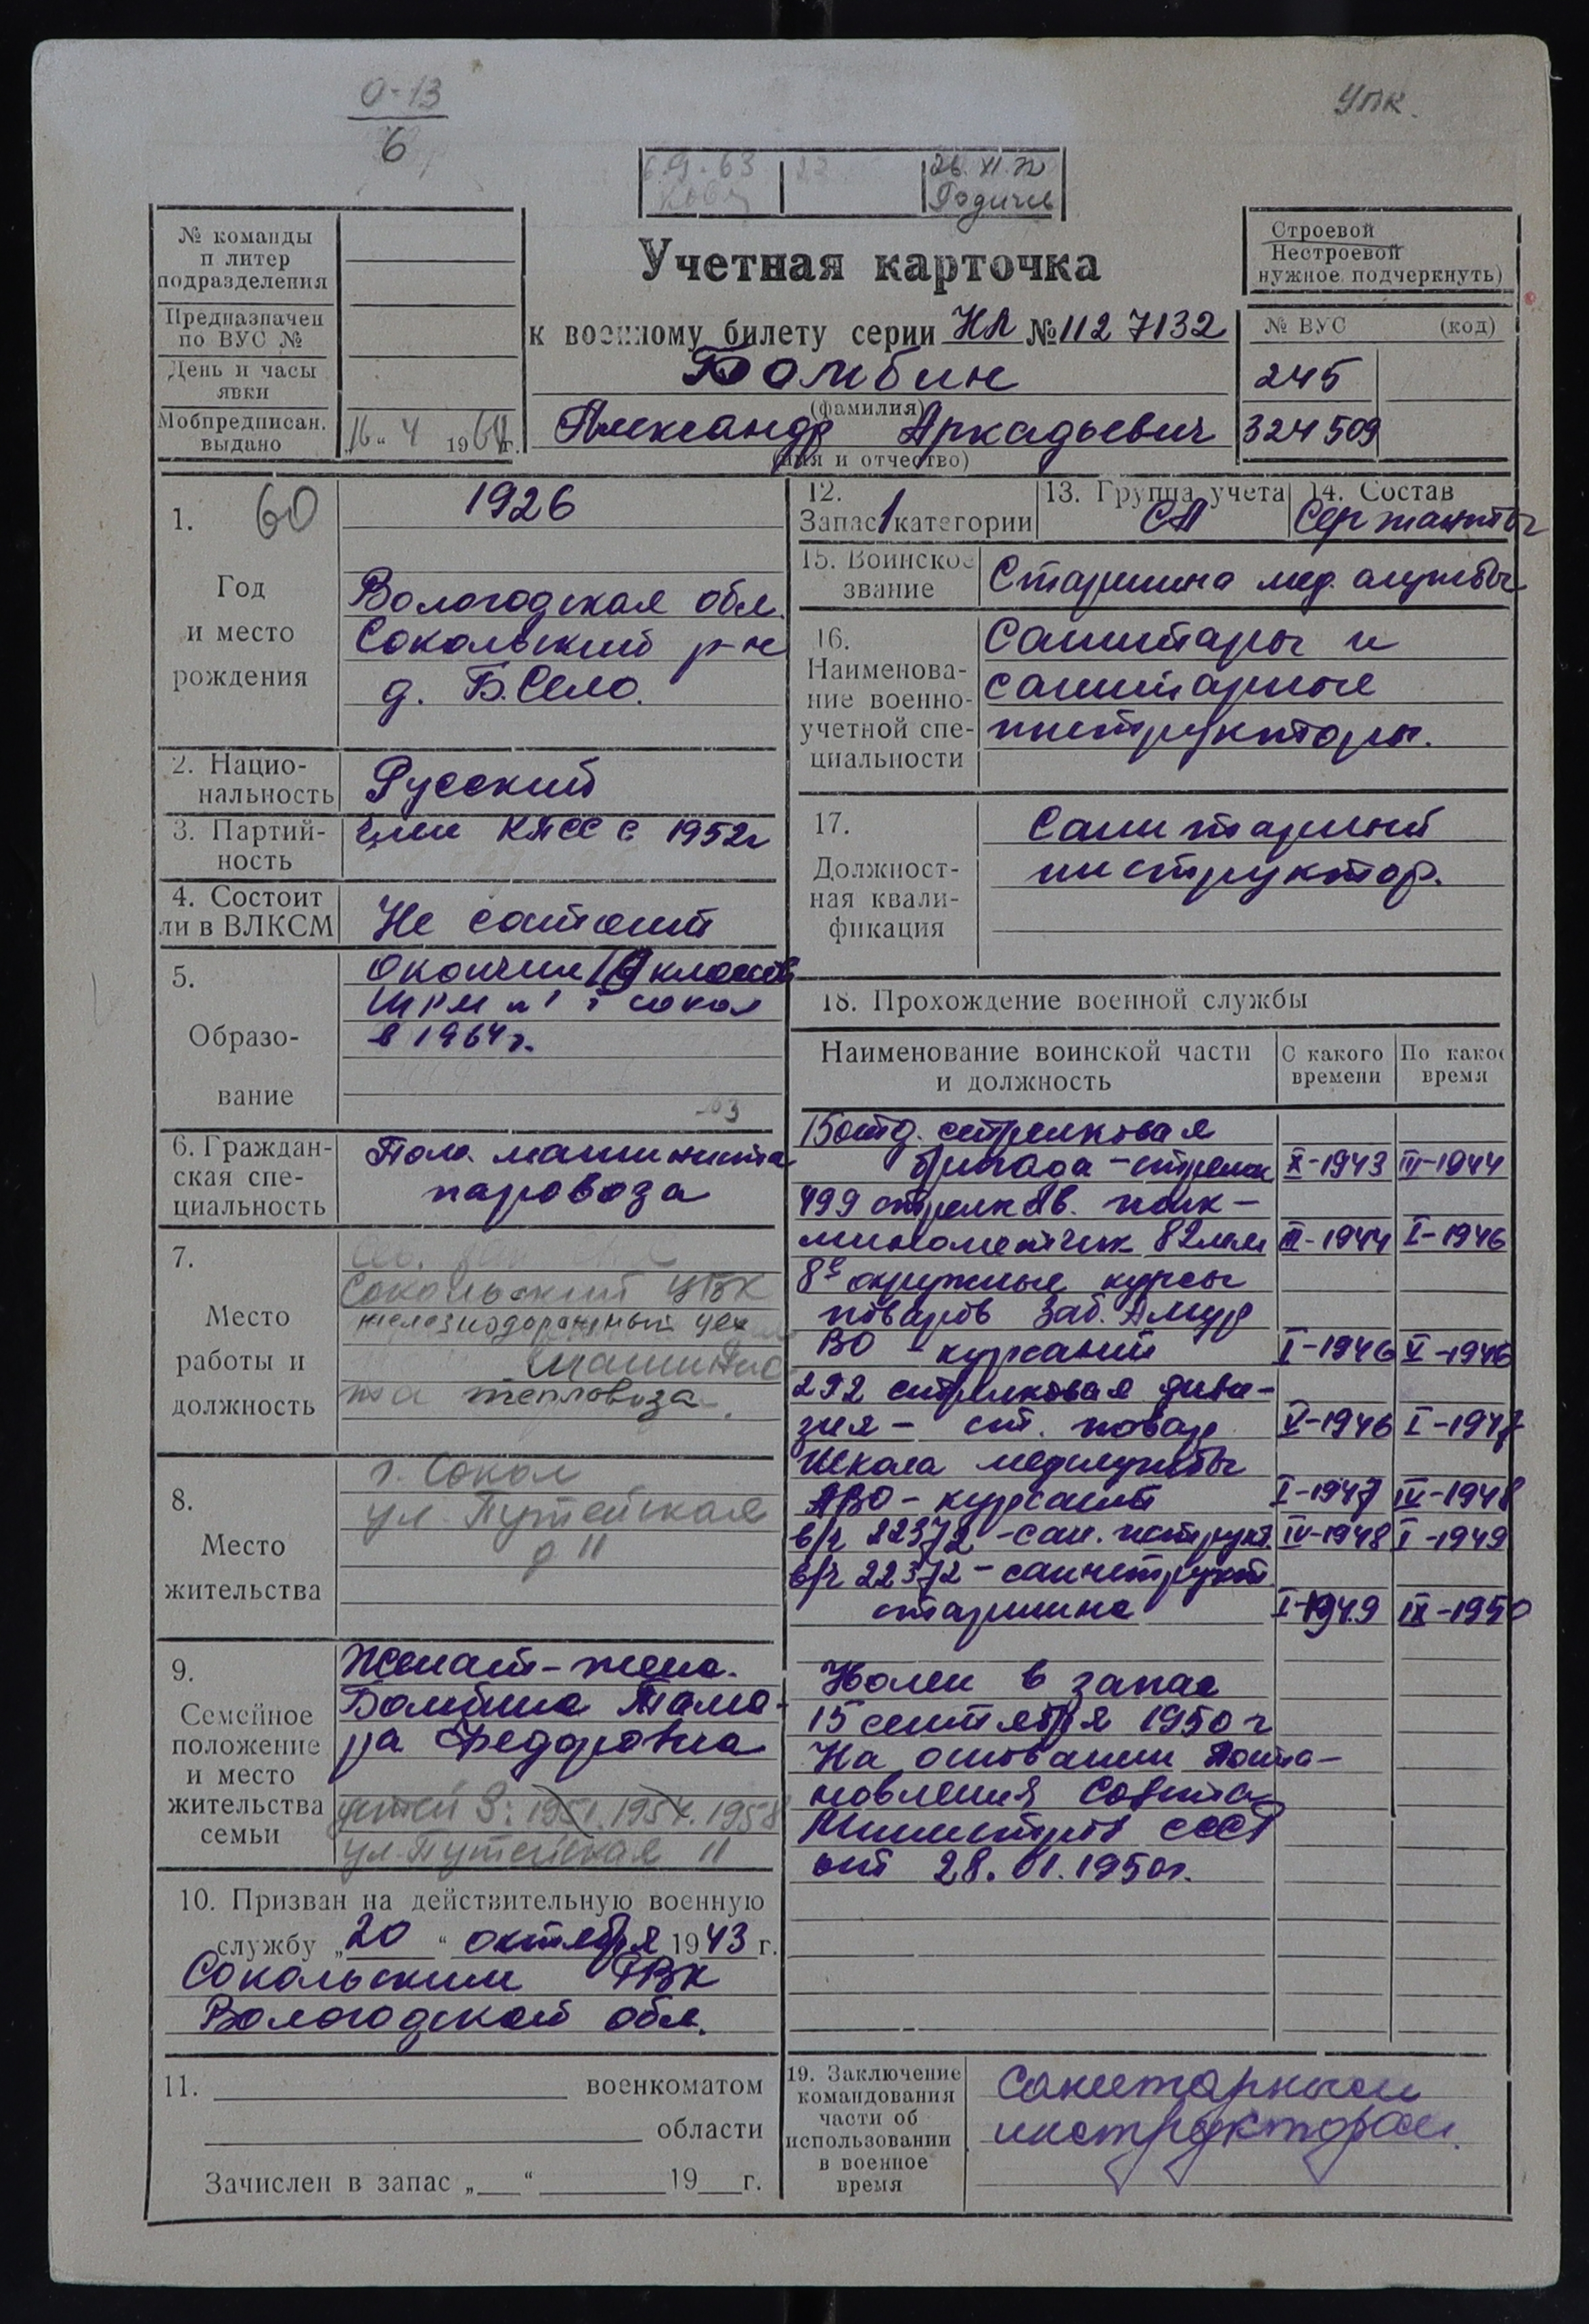 0-13
6
УПК.
6.9.63
22
26.XI.72
Родичев
№ команды
п литер
подразделения
Предназначен
по ВУС №
День и часы
явки
Мобпредписан.
выдано
„16“ 4 1964 г.
Учетная карточка
к военному билету серии НЛ № 1127132
Бомбин
(фамилия)
Александр Аркадьевич
(имя и отчество)
Строевой
Нестроевой
нужное подчеркнуть)
№ ВУС (код)
245
324509
1. 60
Год
и место
рождения
1926
Вологодская обл.
Сокольский р-н
д. Б.Село.
2. Нацио-
нальность
Русский
3. Партий-
ность
Член КПСС с 1952г
4. Состоит
ли в ВЛКСМ
Не состоит
5.
Образо-
вание
Окончил 10 классов
ШРМ №1 г Сокол
в 1964г.
6. Граждан-
ская спе-
циальность
Пом. машиниста
паровоза
7.
Место
работы и
должность
Сокольский ЦБК
железнодорожный цех
машинис
та тепловоза.
8.
Место
жительства
г. Сокол
ул. Путейская
д 11
9.
Семейное
положение
и место
жительства
семьи
Женат - жена.
Бомбина Тама-
ра Федоровна
детей 3: 1951. 1954. 1958
ул. Путейская 11
10. Призван на действительную военную
службу „20“ октября 1943 г.
Сокольским РВК
Вологодской обл.
11. военкоматом
области
Зачислен в запас „ “ 19 г.
12.
Запас 1 категории
13. Группа учета
СА
14. Состав
Сержанты
15. Воинское
звание
Старшина мед. службы
16.
Наименова-
ние военно-
учетной спе-
циальности
Санитары и
санитарные
инструкторы.
17.
Должност-
ная квали-
фикация
Санитарный
инструктор.
18. Прохождение военной службы
Наименование воинской части
и должность
С какого
времени
По какое
время
15 отд. стрелковая
бригада - стрелок X-1943 III-1944
499 стрелков. полк -
минометчик 82мм III-1944 I-1946
8е окружные курсы
поваров Заб. Амур
ВО - курсант I-1946 V-1946
292 стрелковая диви-
зия - ст. повар V-1946 I-1947
Школа медслужбы
АВО - курсант I-1947 IV-1948
в/ч 22372 - сан. инструкт. IV-1948 I-1949
в/ч 22372 - санинструкт
старшина I-1949 IX-1950
Уволен в запас
15 сентября 1950 г
На основании Поста-
новления Совета
Министров СССР
от 28.01.1950г.
19. Заключение
командования
части об
использовании
в военное
время
Санитарным
инструктором.